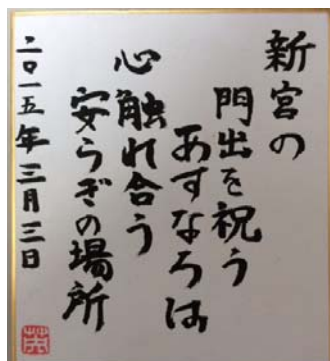 新宮の
門出を祝う
あすなろは
心触れ合う
安らぎの場所
二〇一五年三月三日